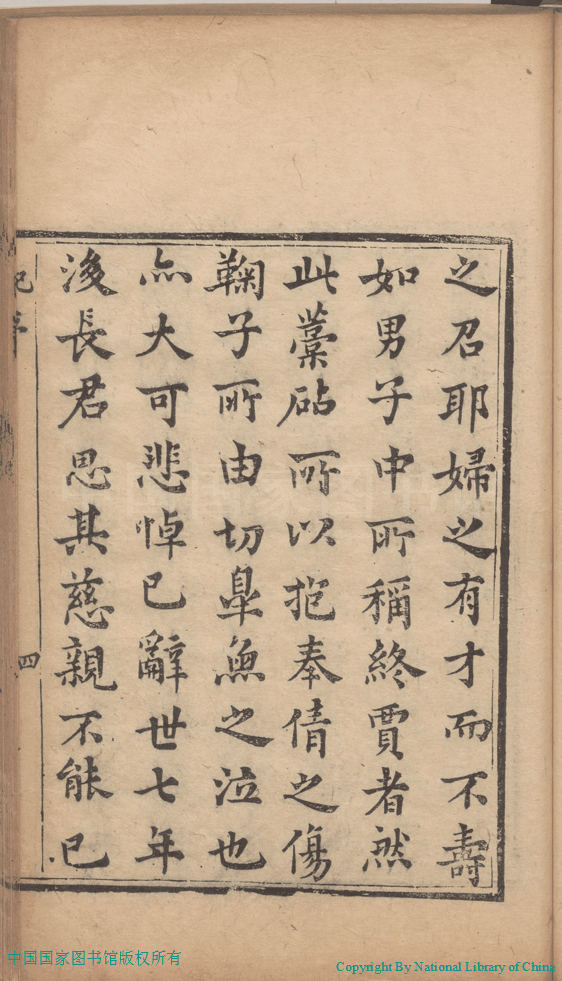 之召耶婦之有才而不壽
如男子中所稱終賈者然
此藁砧所以抱奉倩之傷
鞠子所由切臯魚之泣也
亦大可悲悼已辭世七年
後長君思其慈親不能已
四
中国国家图书馆版权所有
Copyright By National Library of China